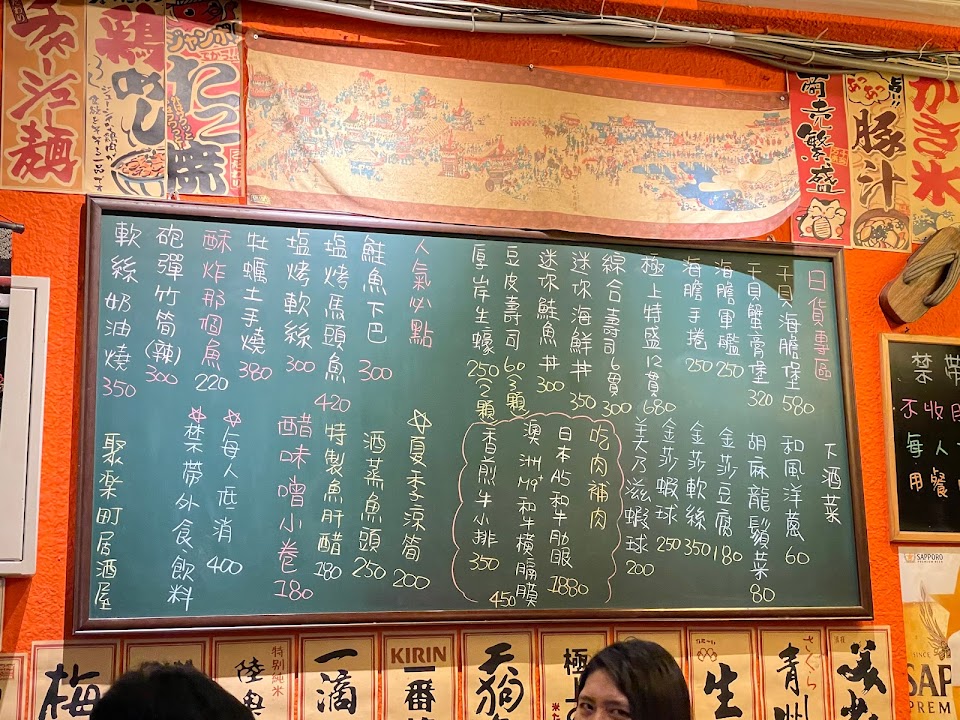 チャーシュー麺
鶏めし
ジャンボ
たこ焼
商売繁盛
豚汁
かき氷
日貨專區
干貝海膽堡 580
干貝蟹膏堡 320
海膽軍艦 250
海膽手捲 250
極上特盛12貫 680
綜合壽司6貫 300
迷你海鮮丼 350
迷你鮭魚丼 300
豆皮壽司 60 3顆
厚岸生蠔 250 2顆
人氣必點
鮭魚下巴 300
塩烤馬頭魚 420
塩烤軟絲 300
牡蠣土手燒 380
酥炸那個魚 220
砲彈竹筒(辣) 300
軟絲奶油燒 350
下酒菜
和風洋蔥 60
胡麻龍鬚菜 80
金莎豆腐 180
金莎軟絲 350
金莎蝦球 250
美乃滋蝦球 200
吃肉補肉
日本A5和牛肋眼 1880
澳洲M9+和牛橫膈膜 450
香煎牛小排 350
☆夏季涼筍 200
酒蒸魚頭 250
特製魚肝醋 180
醋味噌小卷 180
☆每人低消 400
☆禁帶外食、飲料
聚楽町居酒屋
禁帶
不收
每人
用餐
SAPPORO
梅
陸奥
特別純米
一滴
KIRIN
一番
天狗
極上
生
さくら
青州
SINCE
SAP
PREM